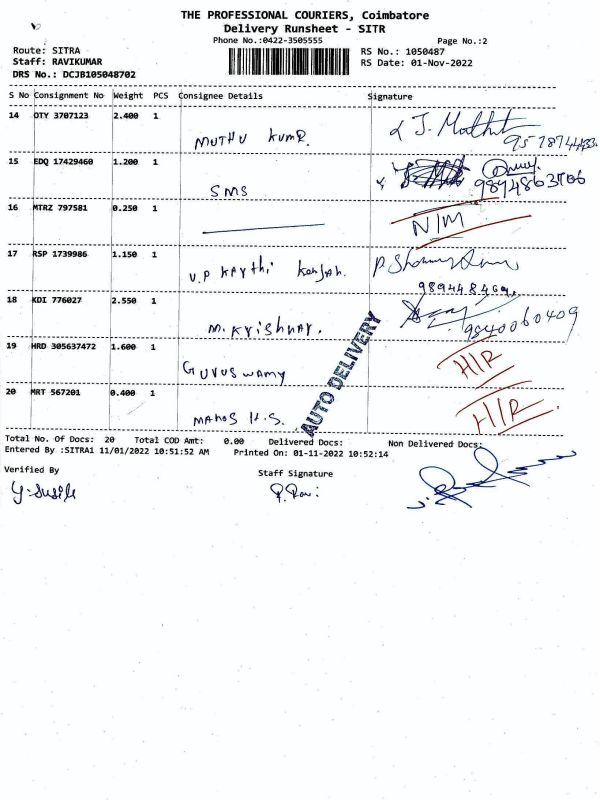 THE PROFESSIONAL COURIERS, Coimbatore
Delivery Runsheet - SITR
Phone No.:0422-3505555 Page No.:2
Route: SITRA RS No.: 1050487
Staff: RAVIKUMAR RS Date: 01-Nov-2022
DRS No.: DCJB105048702
S No Consignment No Weight PCS Consignee Details Signature
14 OTY 3707123 2.400 1 MUTHU KUMR. J. 
15 EDQ 17429460 1.200 1 SMS
16 MTRZ 797581 0.250 1 N/M
17 RSP 1739986 1.150 1 V.P
9894484691
18 KDI 776027 2.550 1 M. Krishnar. 9840060409
19 HRD 305637472 1.600 1 GUVUSWAMY H/R
20 MRT 567201 0.400 1 H.S. H/R
AUTO DELIVERY
Total No. Of Docs: 20 Total COD Amt: 0.00 Delivered Docs: Non Delivered Docs:
Entered By :SITRA1 11/01/2022 10:51:52 AM Printed On: 01-11-2022 10:52:14
Verified By Staff Signature